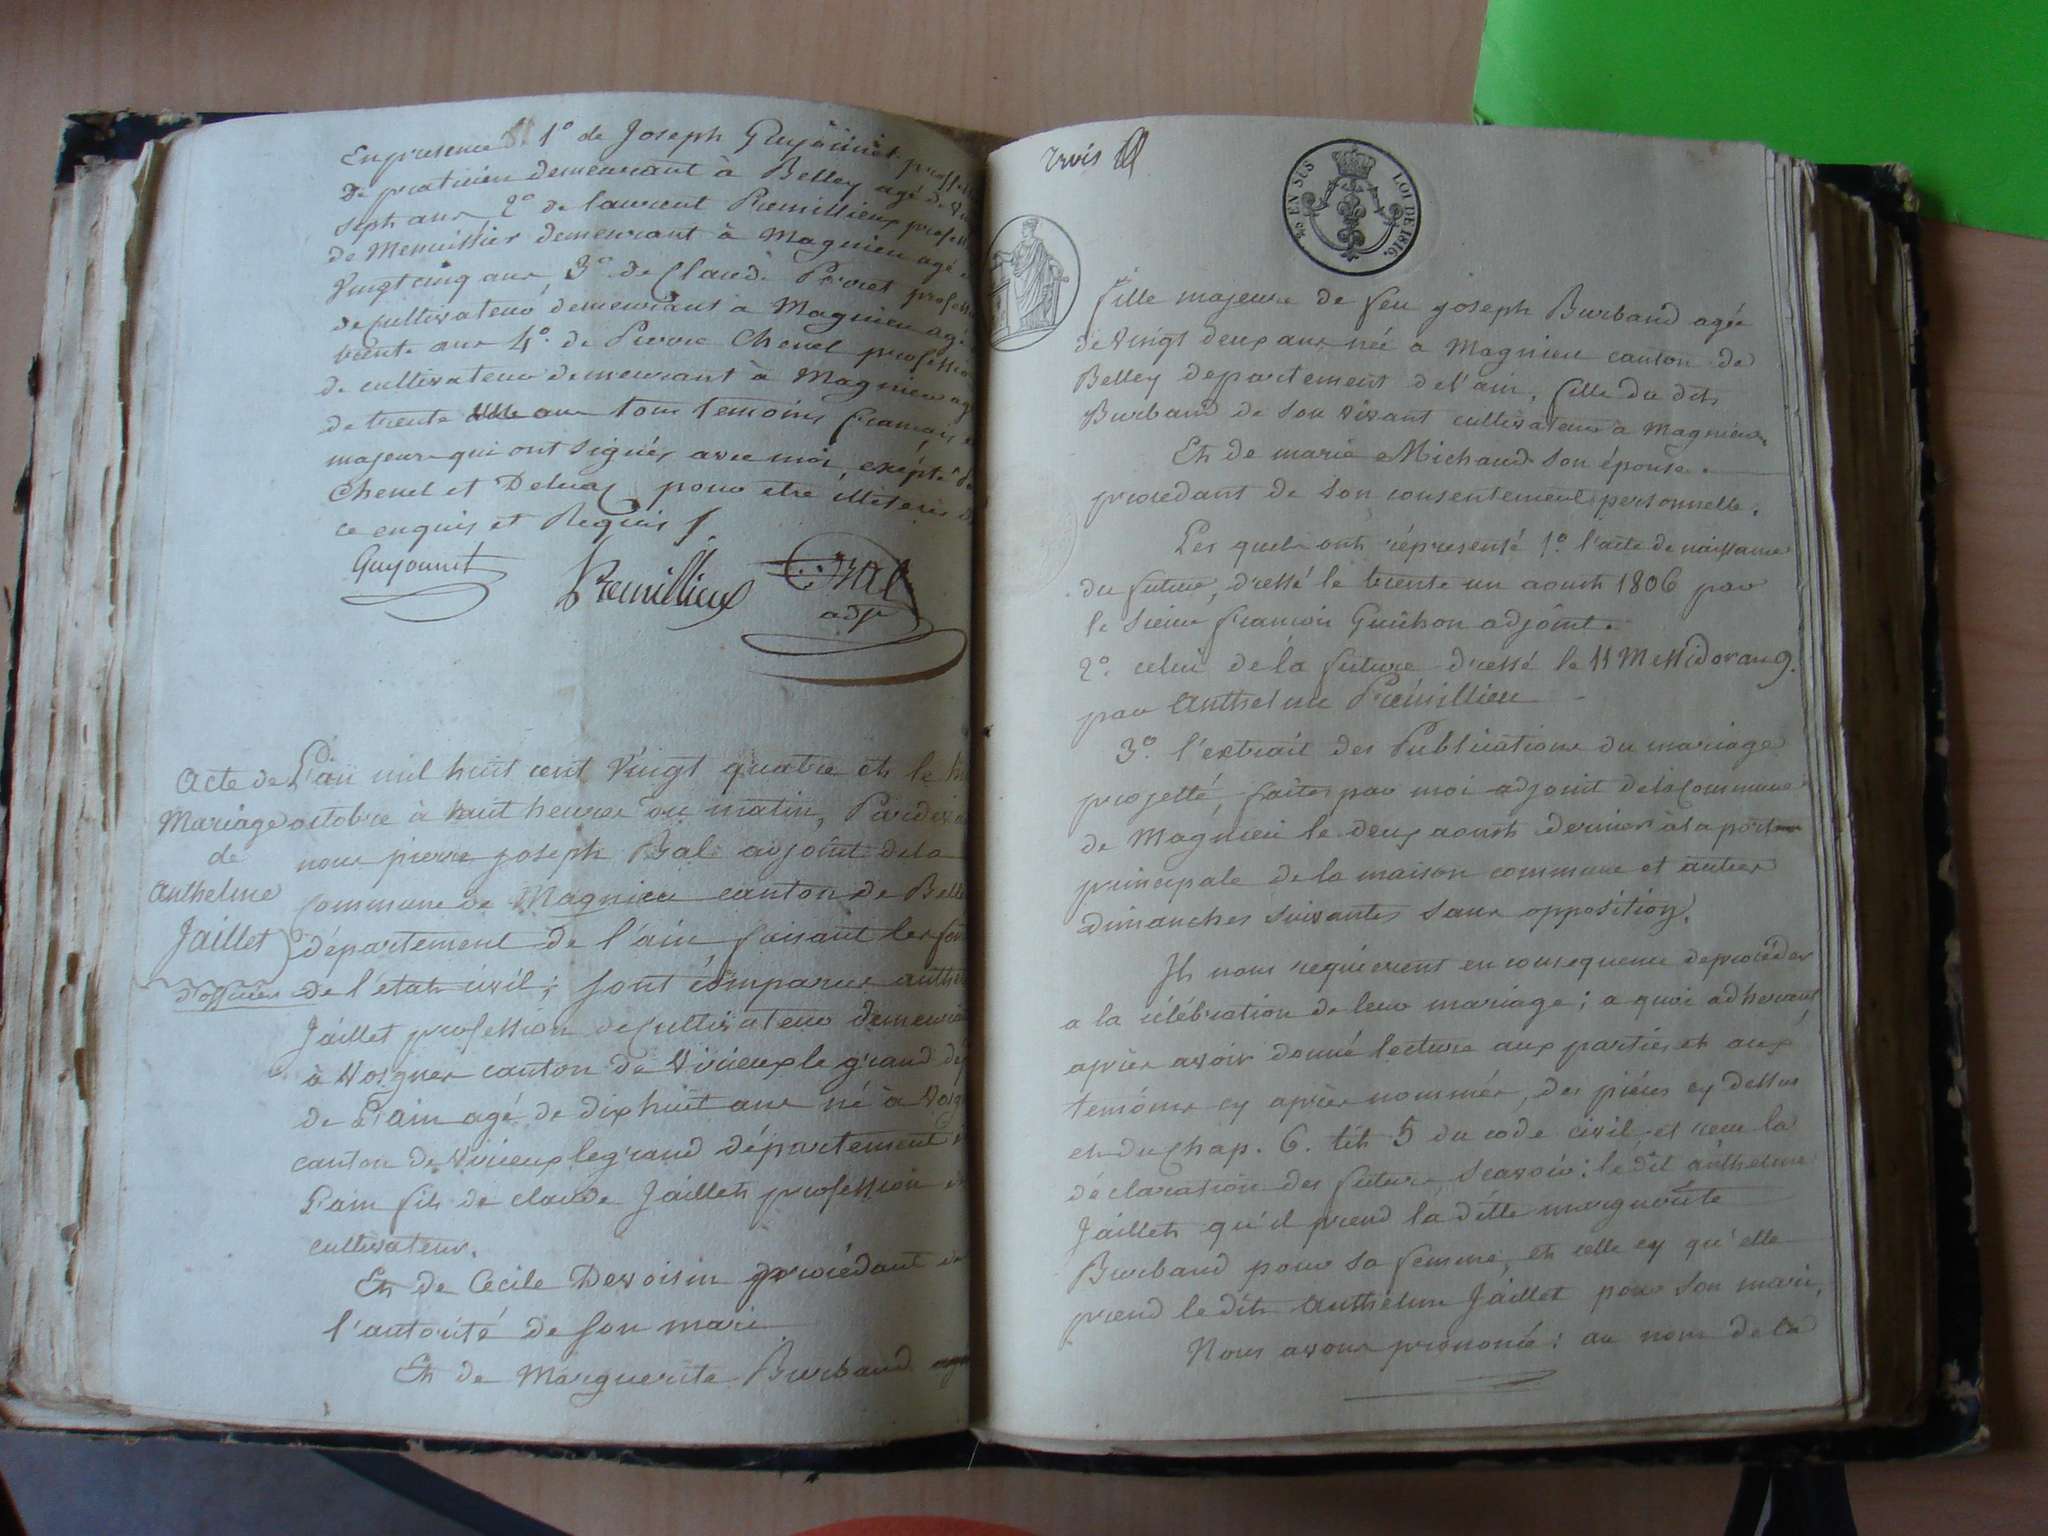 En presence de 1° de Joseph Guyonnet
de praticien demeurant à Belley agé de
sept ans 2° de laurent Remillieux
de Menuissier demeurant à Magnieu agé
Vingt cinq ans, 3° de Claude Perret
de cultivateur demeurant a Magnieu agé
trente ans 4° de Pierre Chenel profession
de cultivateur demeurant à Magnieu
de trente ans tous temoins français
majeurs qui ont signés avec moi, exépté
Chenel et pour etre illiteris
ce enquis et Requis
Guyonnet Remillieux
adjt
Acte de
Mariage
de
Anthelme
Jaillet
d'officier
L'an mil huit cent Vingt quatre et le
octobre à huit heures du matin, Pardevant
nous pierre joseph Bal adjoint de la
Commune de Magnieu canton de
département de l'ain, faisant les
de l'état civil; sont comparus
Jaillet profession de Cultivateur
à Vosgnes canton de Virieux le grand
de L'ain agé de dix huit ans né à
canton de Virieux le grand département
L'ain fils de claude Jaillet profession
cultivateur.
Et de Cécile Devoisin procédant
l'autorité de son mari
Et de Marguerite Burband
trois
EN SUS LOI DE 1816.
fille majeure de feu joseph Burband agée
de Vingt deux ans née a Magnieu canton de
Belley departement de l'ain, fille du dit
Burband de son vivant cultivateur à Magnieu
Et de marie Michaud son épouse.
procedant de son consentement personnelle.
Les quels ont répresenté 1° l'acte de naissance
du future, dressé le trente un aoust 1806 par
le Sieur françois Guichon adjoint.
2° celui de la future dressé le 11 Messidor an 9.
par Anthelme Rémillieu
3° l'extrait des Publications du mariage
projetté, faites par moi adjoint de la Commune
de Magnieu le deux aoust dernier à la porte
principale de la maison commune et autres
dimanches suivantes sans opposition.
Ils nous requierent en consequence de procéder
a la célébration de leur mariage; a quoi adherant,
aprés avoir donné lecture aux parties et aux
temoins cy après nommés, des piéces cy dessus
et du Chap. 6. tit 5 du code civil et recu la
déclaration des futurs Scavoir: le dit anthelme
Jaillet qu'il prend la ditte marguerite
Burband pour sa femme, et celle cy qu'elle
prend le dit Anthelme Jaillet pour son mari,
Nous avons prononcé: au nom de la